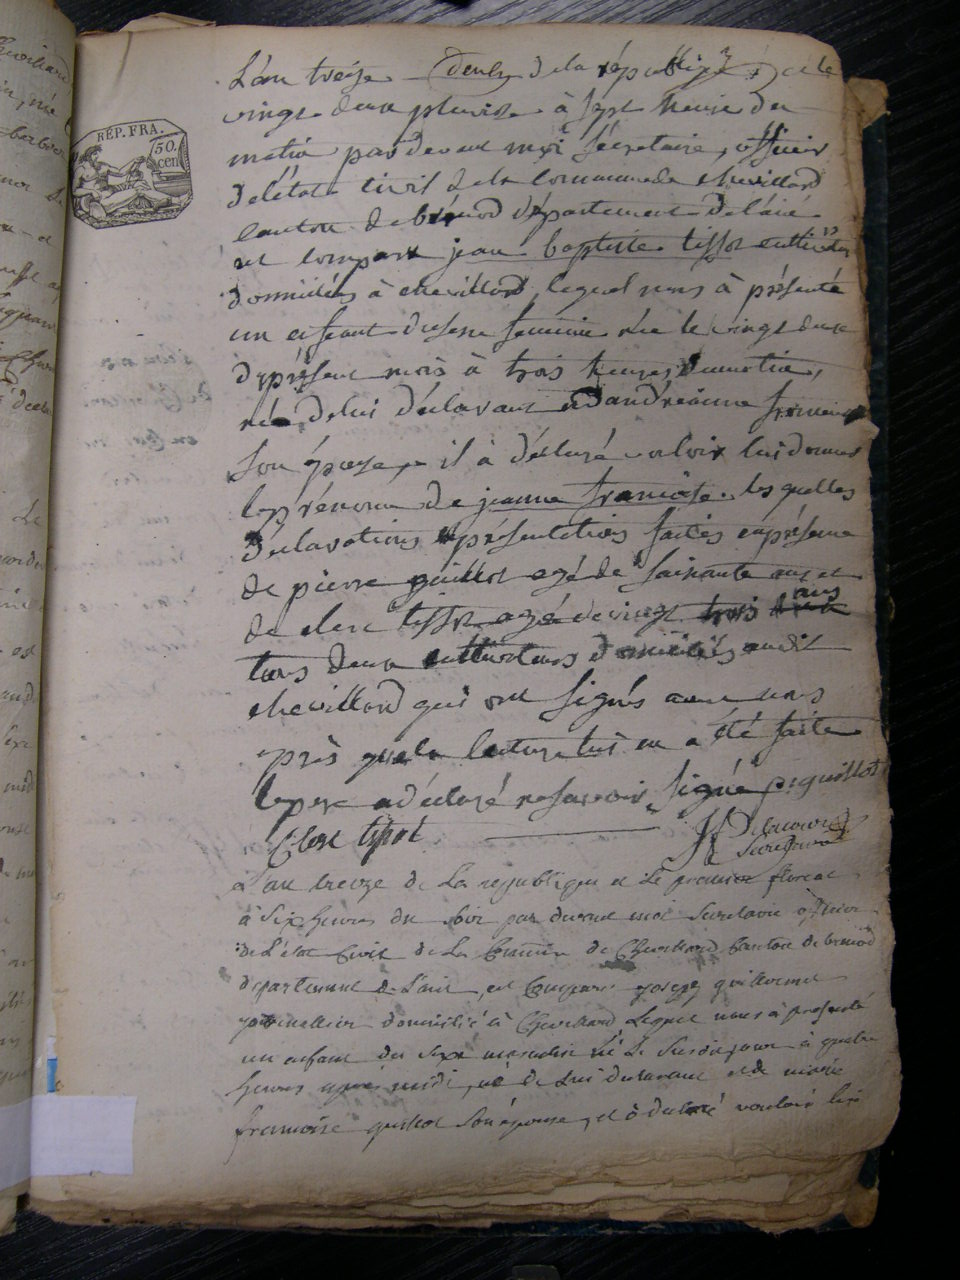 RÉP. FRA.
750.
cen
L'an treize de la république et le
vingt deux pluviose à sept heure du
matin par devant moi sécretaire, officier
de l'état civil de la commune de chevillard
canton de brénod département de l'ain
est comparu jean baptiste tissot cultivateur
domicilié à chevillard lequel nous à présenté
un enfant du sexe feminin née le vingt deux
du présent mois à trois heures du matin,
née de lui déclarant et d'andréanne
son épouse, il à déclaré vouloir lui donner
les prénoms de jeanne françoise. les quelles
déclarations et présentation faites en présence
de pierre guillot agé de soixante ans et
de clere tissot agé de vingt trois ans
tous deux cultivateurs domiciliés audit
chevillard qui ont signés avec nous
après que la lecture lui en a été faite
le pere a déclaré ne savoir signé p. guillot
Clere tissot
Secretaire
L'an treize de la republique et le premier floreal
à six heures du soir par devant moi secretaire officier
de l'état civil de la Commune de Chevillard Canton de brenod
département de l'ain, est Comparu joseph guillermet
domicilié à Chevillard lequel nous à presenté
un enfant du sexe masculin né le susdit jour à quatre
heures après midi, né de lui declarant et de marie
francoise guillot son épouse, et à declaré vouloir lui